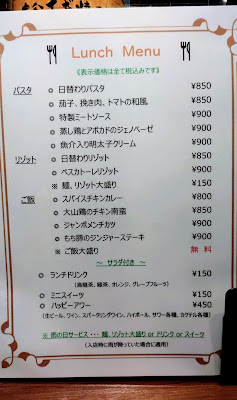 Lunch Menu
《表示価格は全て税込みです》
パスタ ◎ 日替わりパスタ ¥850
◎ 茄子、挽き肉、トマトの和風 ¥850
◎ 特製ミートソース ¥900
◎ 蒸し鶏とアボカドのジェノベーゼ ¥900
◎ 魚介入り明太子クリーム ¥900
リゾット ◎ 日替わりリゾット ¥850
◎ ペスカトーレリゾット ¥900
※ 麺、リゾット大盛り ¥150
ご飯 ◎ スパイスチキンカレー ¥800
◎ 大山鶏のチキン南蛮 ¥850
◎ ジャンボメンチカツ ¥900
◎ もち豚のジンジャーステーキ ¥900
※ ご飯大盛り 無料
～ サラダ付き ～
◎ ランチドリンク ¥150
(烏龍茶、緑茶、オレンジ、グレープフルーツ)
◎ ミニスイーツ ¥150
◎ ハッピーアワー ¥450
(生ビール、ワイン、スパークリングワイン、ハイボール、サワー各種、カクテル各種)
※ 雨の日サービス ・・・ 麺、リゾット大盛り or ドリンク or スイーツ
(入店時に雨が降っていた場合に適用)